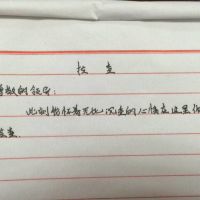 检查
尊敬的领导:
此刻我怀着无比沉重的心情在这里做
检查